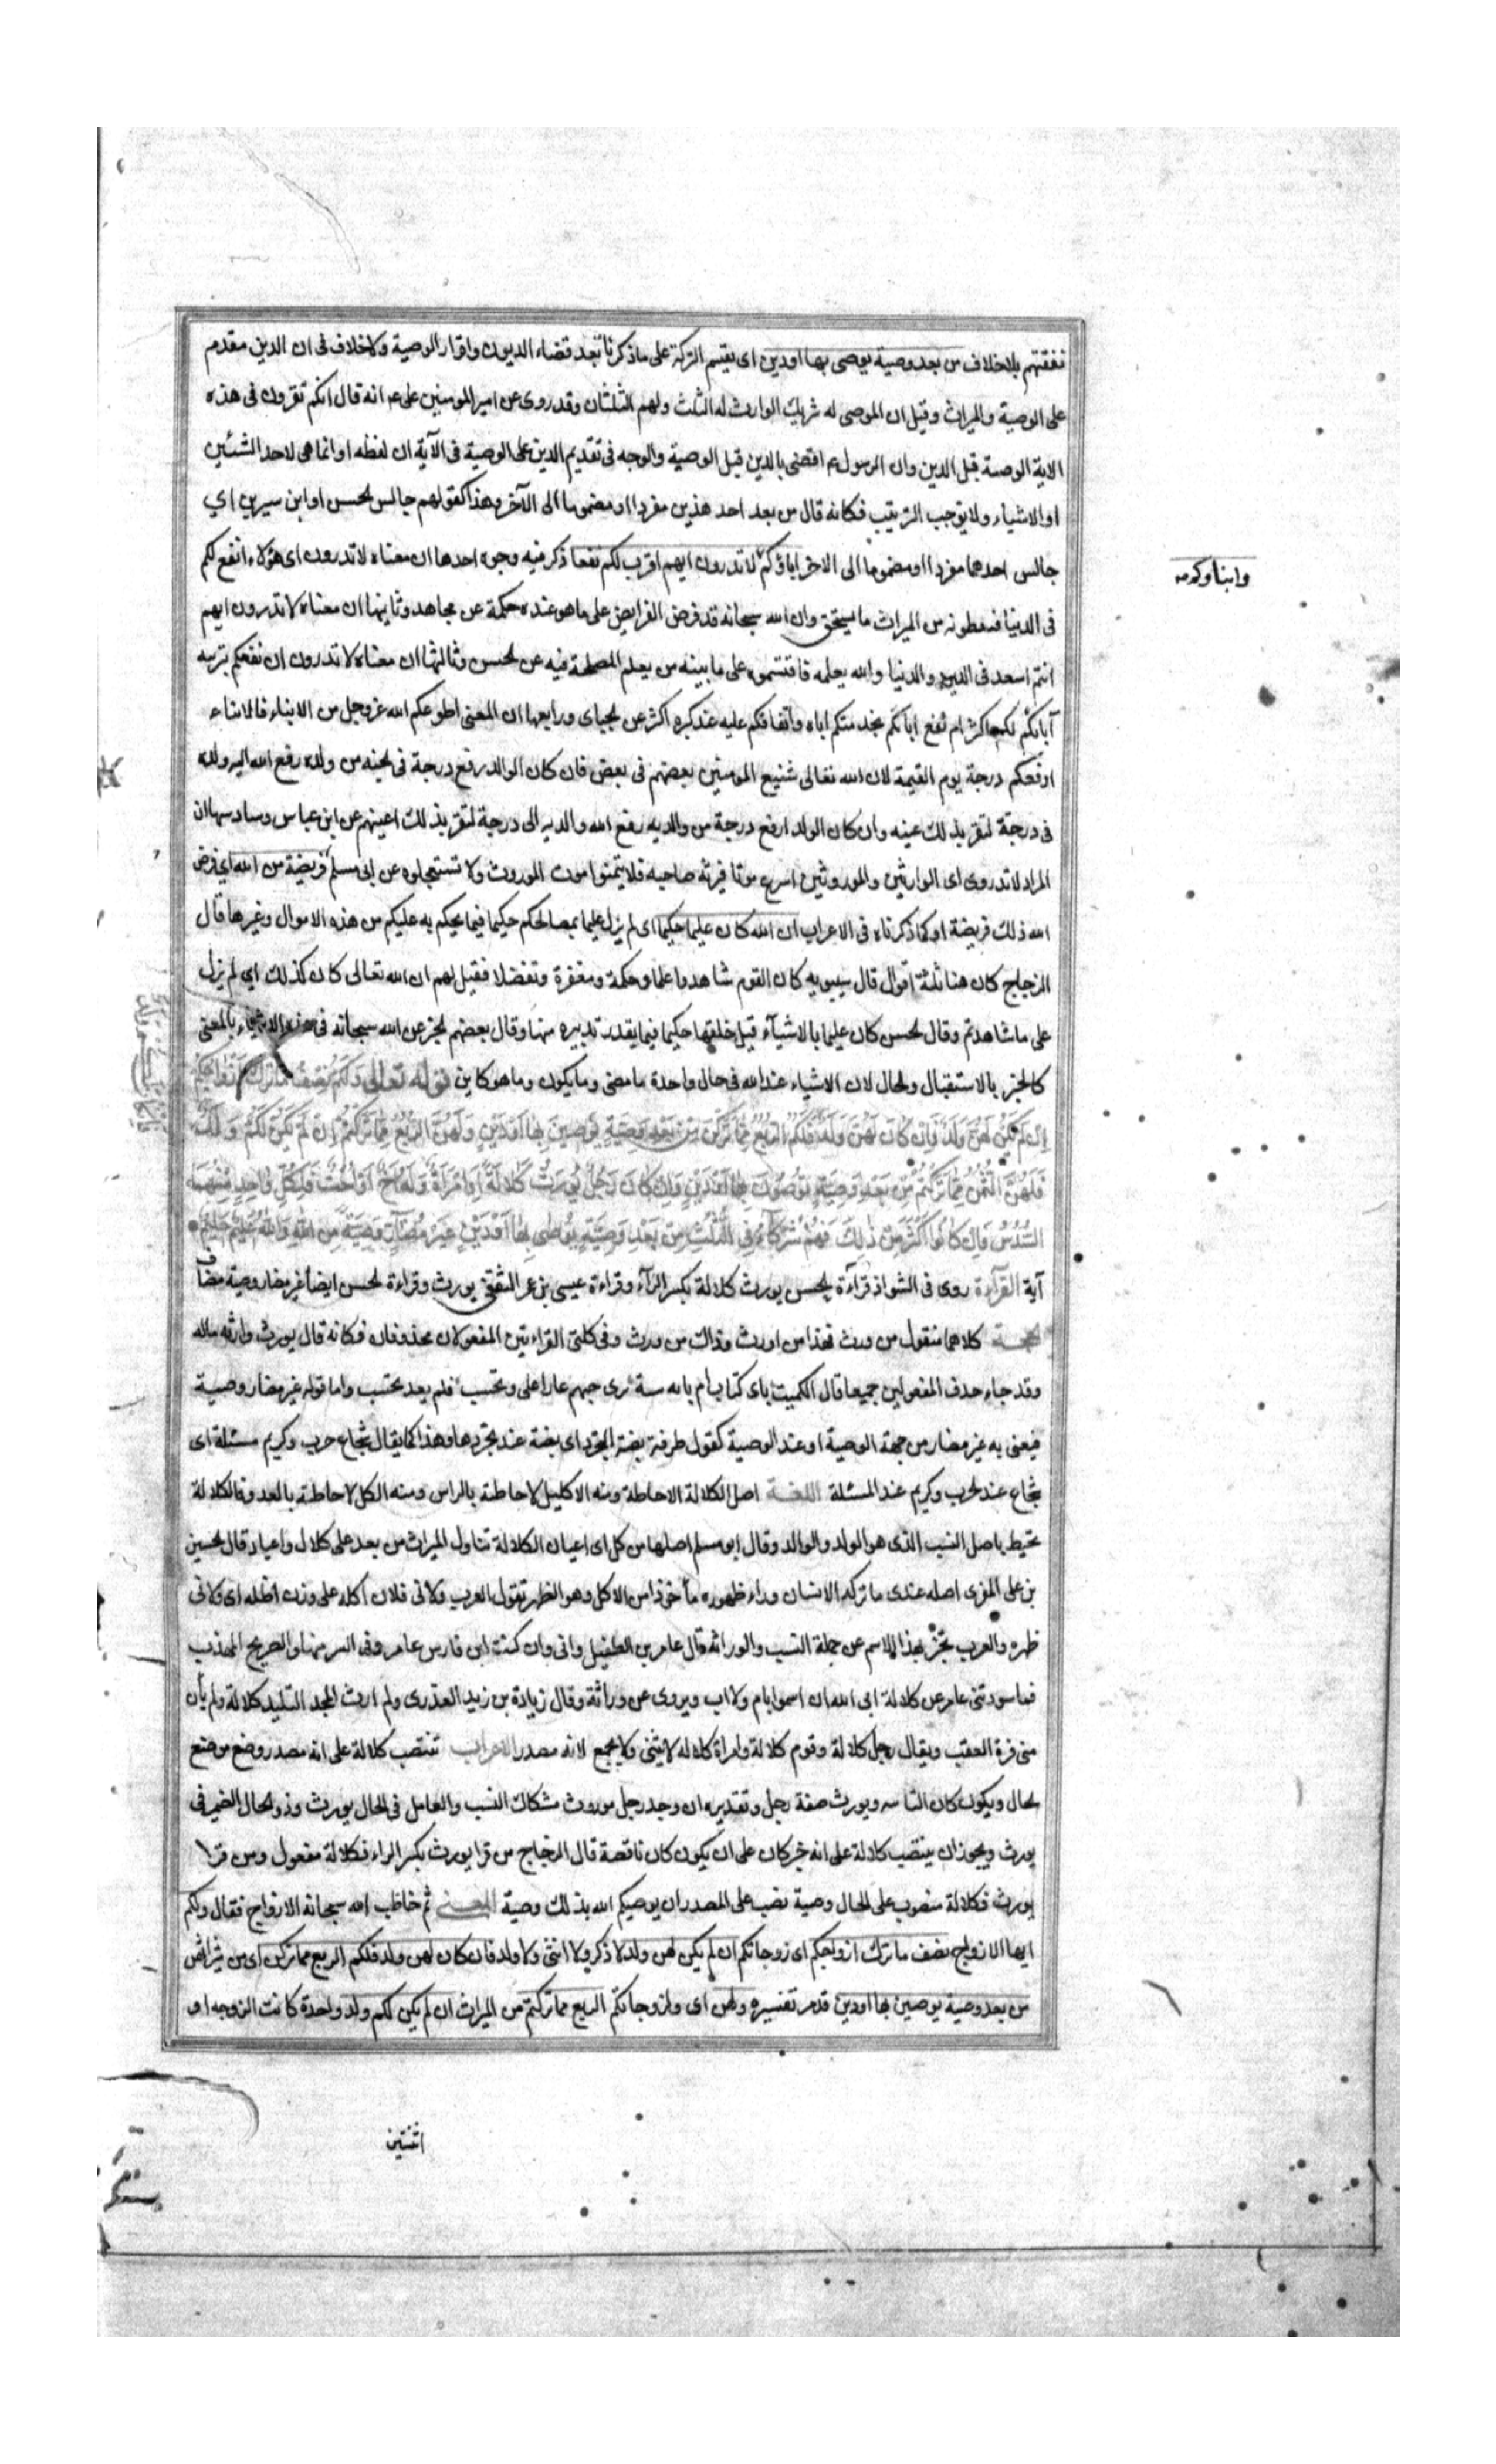 نفقتهم بلاخلاف من بعد وصية يوصى بها اودين اى يقسم التركة على ما ذكرنا بعد قضاء الديون واقرار الوصية ولاخلاف فى ان الدين مقدم
على الوصية والميراث وقيل ان الموصى له شريك الوارث له الثلث ولهم الثلثان وقد روى عن امير المومنين على عم انه قال انكم تقرون فى هذه
الاية الوصية قبل الدين وان الرسول عم اقضى بالدين قبل الوصية والوجه فى تقديم الدين على الوصية فى الآية ان لفظه او انما هى لاحد الشئين
او الاشياء ولا يوجب الترتيب فكانه قال من بعد احد هذين مفردا او مضموما الى الآخر وهذا كقولهم جالس لحسن او ابن سيرين اى
جالس احدهما مفردا او مضموما الى الاخر اباؤكم لا تدرون ايهم اقرب لكم نفعا ذكر فيه وجوه احدها ان معناه لا تدرون اى هؤلاء انفع لكم
وابناوكم صه
فى الدنيا فتعطونه من الميراث ما يستحق وان الله سبحانه قد فرض الفرايض على ما هو عنده حكمة عن مجاهد وثانيها ان معناه لا تدرون ايهم
انتم اسعد فى الدين والدنيا والله يعلمه فاقتسموه على ما بينه من يعلم المصلحة فيه عن لحسن وثالثها ان معناه لا تدرون ان نفعكم بتربيه
آبائكم لكم اكثر ام نفع ابائكم بخدمتكم اياه وانفاقكم عليه عند كبره اكثر عن لجباى ورابعها ان المعنى اطوعكم الله عزوجل من الابناء فالابناء
ارفعكم درجة يوم القيمة لان الله تعالى شفيع المومنين بعضهم فى بعض فان كان الوالد رفع درجة فى لجنه من ولده رفع الله اليه ولده
فى درجة لتقر بذلك عينه وان كان الولد ارفع درجة من والديه رفع الله والديه الى درجة لتقر بذلك اعينهم عن ابن عباس وسادسها ان
المراد لا تدروى اى الوارثين والموروثين اسرع موتا فيرثه صاحبه فلا يتمنوا موت الموروث ولا تستجلوه عن ابى مسلم فريضة من الله اى فرض
الله ذلك فريضة او كما ذكرناه فى الاعراب ان الله كان عليما حكيما اى لم يزل عليما بمصالحكم حكيما فيما يحكم به عليكم من هذه الاموال وغيرها قال
الزجاج كان هنا ثلثة اقوال قال سيبويه كان القوم شاهدوا علما وحكمة ومغفرة وتفضلا فقيل لهم ان الله تعالى كان كذلك اى لم يزل
على ما شاهدتم وقال لحسن كان عليما بالاشياء قبل خلقها حكيما فيما يقدر تدبيره منها وقال بعضهم لخبر عن الله سبحانه فى هذه الاشياء بالمعنى
كالخبر بالاستقبال ولحال لان الاشياء عند الله فى حال واحدة ما مضى وما يكون وما هو كاين قوله تعالى وَلَكُمْ نِصْفُ مَا تَرَكَ اَزْوَاجُكُمْ
اِنْ لَمْ يَكُنْ لَهُنَّ وَلَدٌ فَاِنْ كَانَ لَهُنَّ وَلَدٌ فَلَكُمُ الرُّبُعُ مِمَّا تَرَكْنَ مِنْ بَعْدِ وَصِيَّةٍ يُوصِينَ بِهَا اَوْدَيْنٍ وَلَهُنَّ الرُّبُعُ مِمَّا تَرَكْتُمْ اِنْ لَمْ يَكُنْ لَكُمْ وَلَدٌ
فَلَهُنَّ الثُّمُنُ مِمَّا تَرَكْتُمْ مِنْ بَعْدِ وَصِيَّةٍ تُوصُونَ بِهَا اَوْدَيْنٍ وَاِنْ كَانَ رَجُلٌ يُورَثُ كَلَالَةً اَوِ امْرَاَةٌ وَلَهُ اَخٌ اَوْ اُخْتٌ فَلِكُلِّ وَاحِدٍ مِنْهُمَا
السُّدُسُ فَاِنْ كَانُوا اَكْثَرَ مِنْ ذٰلِكَ فَهُمْ شُرَكَاءُ فِى الثُّلُثِ مِنْ بَعْدِ وَصِيَّةٍ يُوصٰى بِهَا اَوْدَيْنٍ غَيْرَ مُضَارٍّ وَصِيَّةً مِنَ اللهِ وَاللهُ عَلِيمٌ حَلِيمٌ
آية القراءة روى فى الشواذ قراءة لحسن يورث كلالة بكسر الراء وقراءة عيسى بن عمر الثقفى يورث وقراءة لحسن ايضا غير مضار وصية مضاف
كلاهما منقول من ورث فهذا من اورث وذاك من ورث وفى كلتى القراءتين المفعولان محذوفان فكانه قال يورث وارثه ماله
وقد جاء حذف المفعولين جميعا قال الكميت باى كتاب ام بايه سنة ترى حبهم عارا على وتحسب فلم يعد تحسب واما قوله غير مضار وصية
فيعنى به غير مضار من جهة الوصية او عند الوصية كقول طرفة بضة المجرد اى بضة عند تجردها وهذا كما يقال شجاع حرب وكريم مسئلة اى
شجاع عند لحرب وكريم عند المسئلة اللغـــة اصل الكلالة الاحاطة ومنه الاكليل لاحاطته بالراس ومنه الكل لاحاطته بالعدد فالكلالة
تحيط باصل النسب الذى هو الولد والوالد وقال ابو مسلم اصلها من كل اى اعيا فان الكلالة تناول الميراث من بعد على كلال واعياء قال لحسين
بن على المغربى اصله عندى ما تركه الانسان وراء ظهوره مأخوذا من الاكل وهو الظهر تقول العرب ولانى فلان اكله على وزن اظله اى ولانى
ظهره والعرب تخبر بهذا الاسم عن جملة النسب والوراثة قال عامر بن الطفيل وانى وان كنت ابن فارس عامر وفى السر منها والصريح المهذب
فما سودتنى عامر عن كلالة ابى الله ان اسموا بام ولا اب ويروى عن وراثة وقال زيادة بن زيد العذرى ولم ارث المجد التليد كلالة ولم يأن
منى فترة العقب ويقال رجل كلالة وقوم كلالة وامراة كلاله لا يثنى ولا يجمع لانه مصدر الاعراب تنتصب كلالة على انه مصدر وضع موضع
لحال ويكون كان التامه ويورث صفة رجل وتقديره ان وجد رجل موروث متكلل النسب والعامل فى الحال يورث وذولحال الضمير فى
يورث ويجوز ان ينتصب كلالة على انه خبر كان على ان يكون كان ناقصة قال الزجاج من قرا يورث بكسر الراء فكلالة مفعول ومن قرا
يورث فكلالة منصوب على الحال وصية نصب على المصدر ان يوصيكم الله بذلك وصية المعنى ثم خاطب الله سبحانه الازواج فقال ولكم
ايها الازواج نصف ما ترك ازواجكم اى زوجاتكم ان لم يكن لهن ولد لا ذكر ولا انثى ولا ولد فان كان لهن ولد فلكم الربع مما تركن اى من ميراثهن
من بعد وصية يوصين بها اودين قد مر تفسيره ولهن اى ولزوجاتكم الربع مما تركتم من الميراث ان لم يكن لكم ولد واحدة كانت الزوجه او
اثنتين